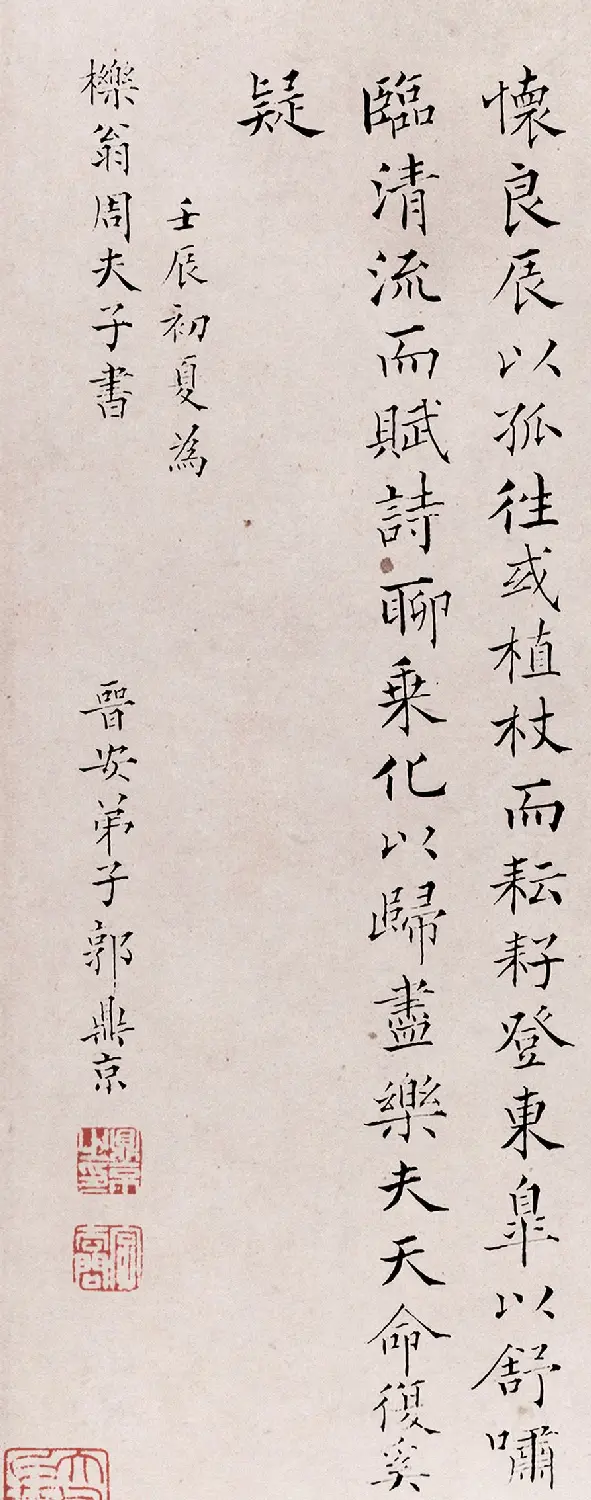 懷良辰以孤往或植杖而耘耔登東皐以舒嘯
臨清流而賦詩聊乗化以歸盡樂夫天命復奚
疑
壬辰初夏為
櫟翁周夫子書
晉安弟子郭鼎京
鼎京之印